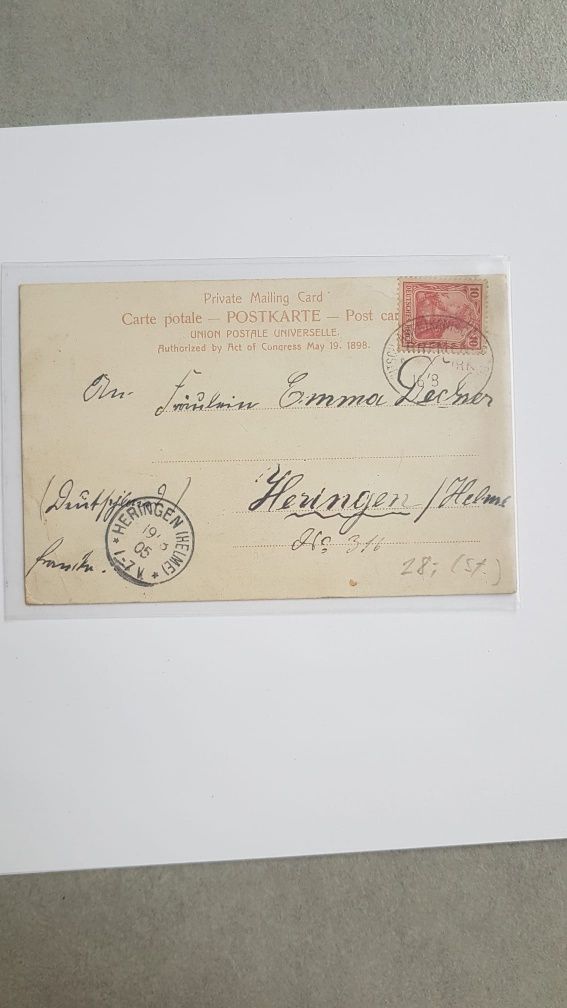 Private Mailing Card
Carte postale — POSTKARTE — Post car
UNION POSTALE UNIVERSELLE.
Authorized by Act of Congress May 19. 1898.
10 DEUTSCHES 10
BREMEN
YORK
19/3
An Fräulein Emma Deckner
(Deutschland)
Heringen /Helme
No 311
franko.
* HERINGEN (HELME) *
19
05
7-8 V.
28,- (St.)